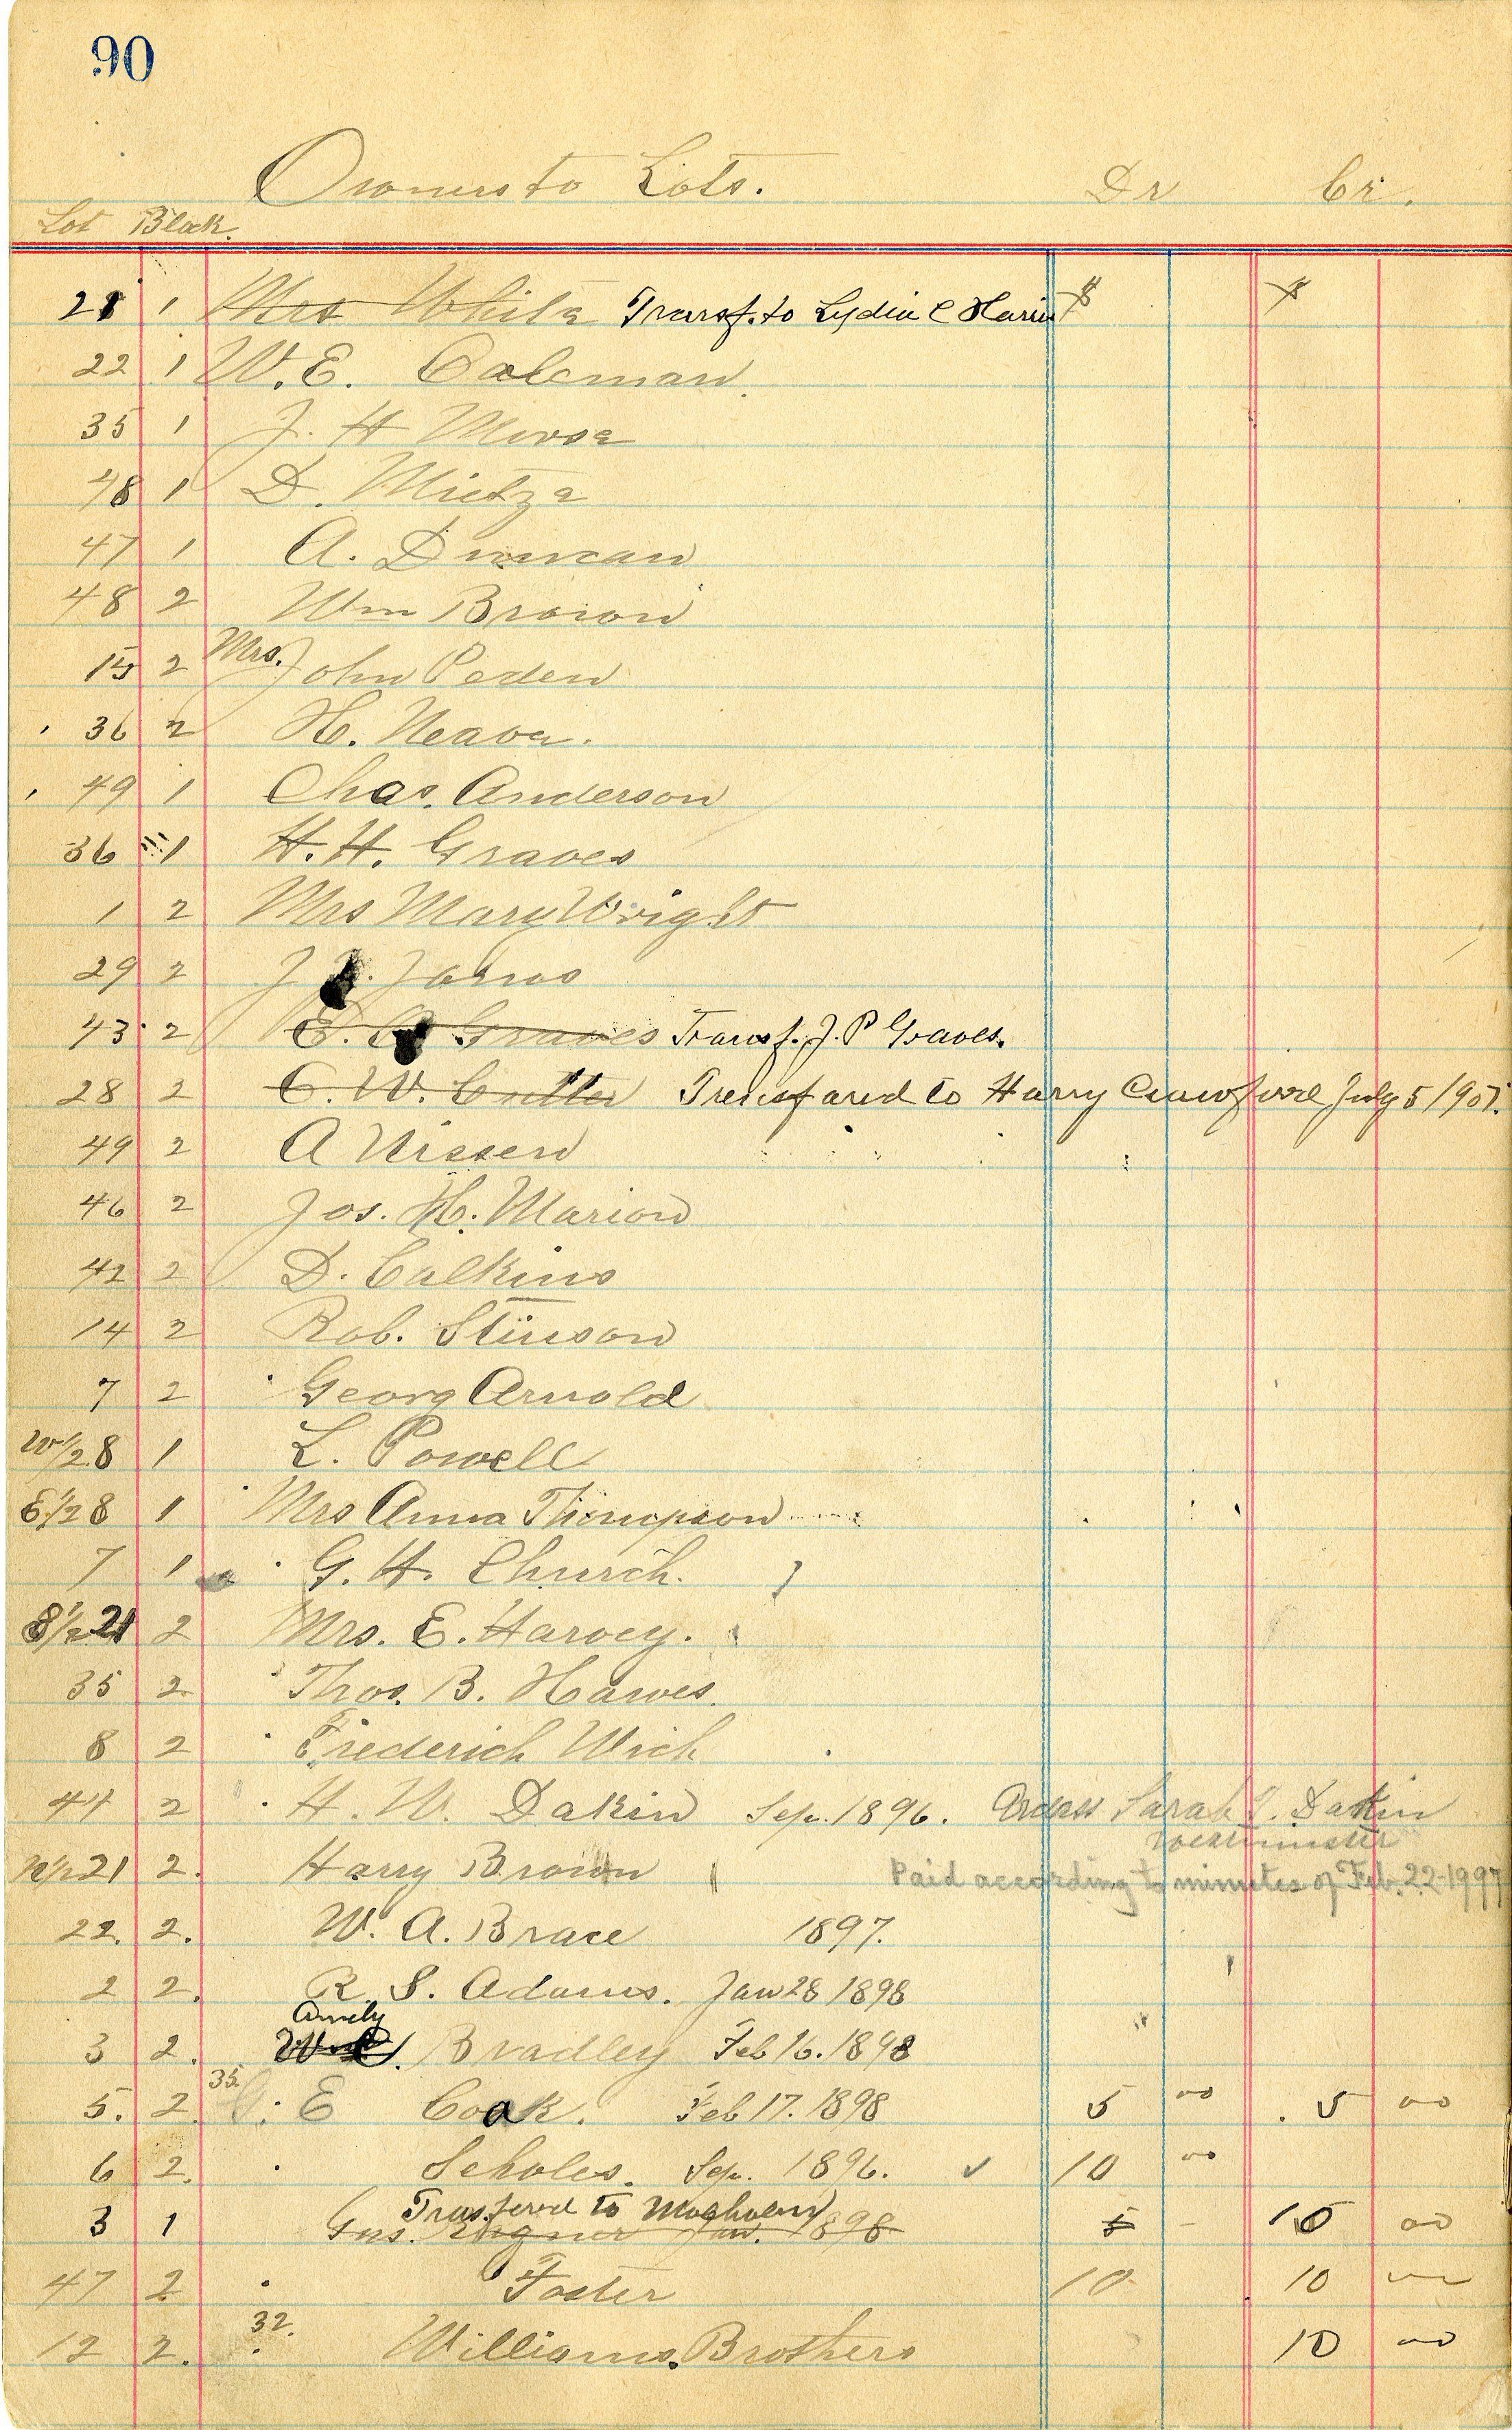 90
Owners to Lots. Dr Cr.
Lot Block.
21 1 Mrs White Transf. to Lydia C Harris $ $
22 1 W. E. Coleman.
35 1 J. H Morse
48 1 D. Mietze
47 1 A. Duncan
48 2 Wm Brown
15 2 Mrs. John Peden
36 2 H. Neaver.
49 1 Chas. Anderson
36 1 H. H. Graves
1 2 Mrs Mary Wright
29 2 J
43 2 E. Graves Transf. J. P Graves.
28 2 C. W. Cutter Transfared to Harry Crawford July 5 1907.
49 2 A Nissen
46 2 Jos. H. Marion
42 2 D. Calkins
14 2 Rob. Stinson
7 2 Georg Arnold
W 1/2 8 1 L. Powell
E 1/2 8 1 Mrs Anna Thompson
7 1 G. H. Church.
S 1/2 21 2 Mrs. E. Harvey.
35 2 Thos. B. Hawes.
8 2 Frederich Wich
44 2 H. W. Dakin Sep. 1896. Sarah J. Dakin
Westminster
N 1/2 21 2. Harry Brown Paid according to minutes of Feb. 22-1997
22. 2. W. A. Brace 1897.
2 2. R. S. Adams. Jan 28 1898
Amely
3 2. Bradley Feb 16. 1898
35.
5. 2. G. E Cook. Feb 17. 1898 5 00 5 00
6 2. Scholes. Sep. 1896. ✓ 10 00
Trasfered to
3 1 Gus. Wagner Jan. 1898 5 - 10 00
47 2 Foster 10 10
32.
12 2. Williams. Brothers 10 00